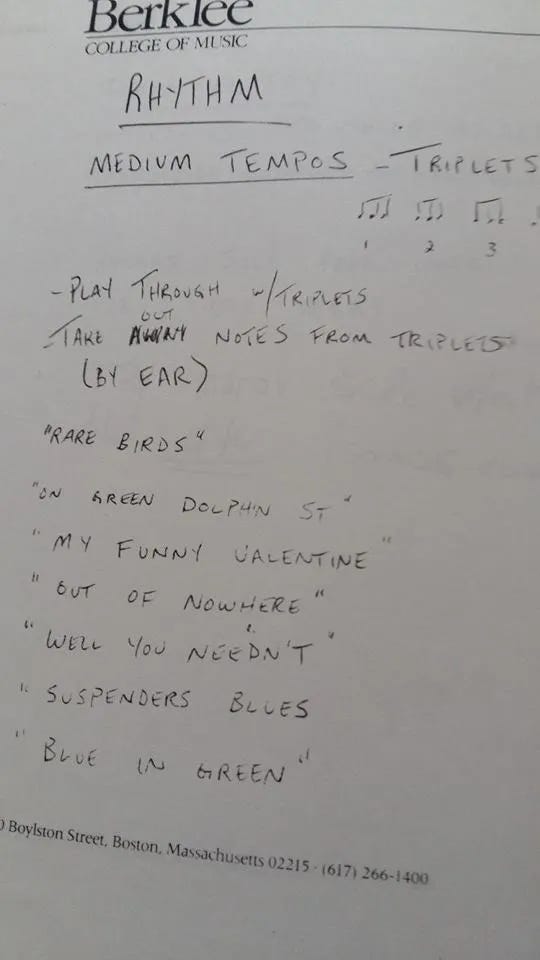 Berklee
COLLEGE OF MUSIC
RHYTHM
MEDIUM TEMPOS - TRIPLETS
1 2 3
- PLAY THROUGH w/TRIPLETS
OUT
- TAKE NOTES FROM TRIPLETS
(BY EAR)
"RARE BIRDS"
"ON GREEN DOLPHIN ST"
"MY FUNNY VALENTINE"
"OUT OF NOWHERE"
"WELL YOU NEEDN'T"
"SUSPENDERS BLUES
"BLUE IN GREEN"
0 Boylston Street, Boston, Massachusetts 02215 · (617) 266-1400